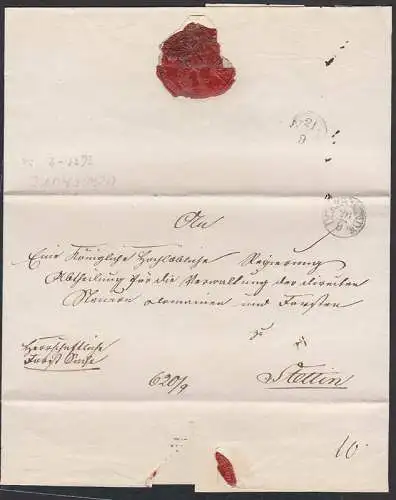 An
Eine Königliche Hochlöbliche Regierung
Abtheilung für die Verwaltung der directen
Steuern Domainen und Forsten
zu
Stettin
Herrschaftliche
Forst Sache
620/9
10